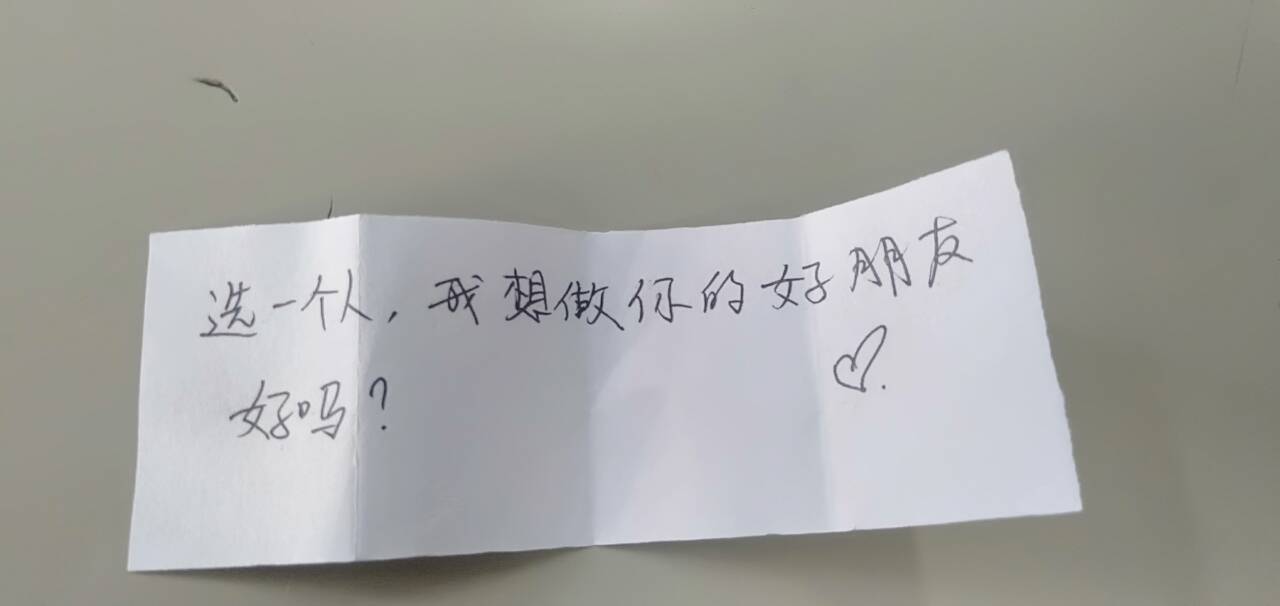 选一个人，我想做你的好朋友
好吗？